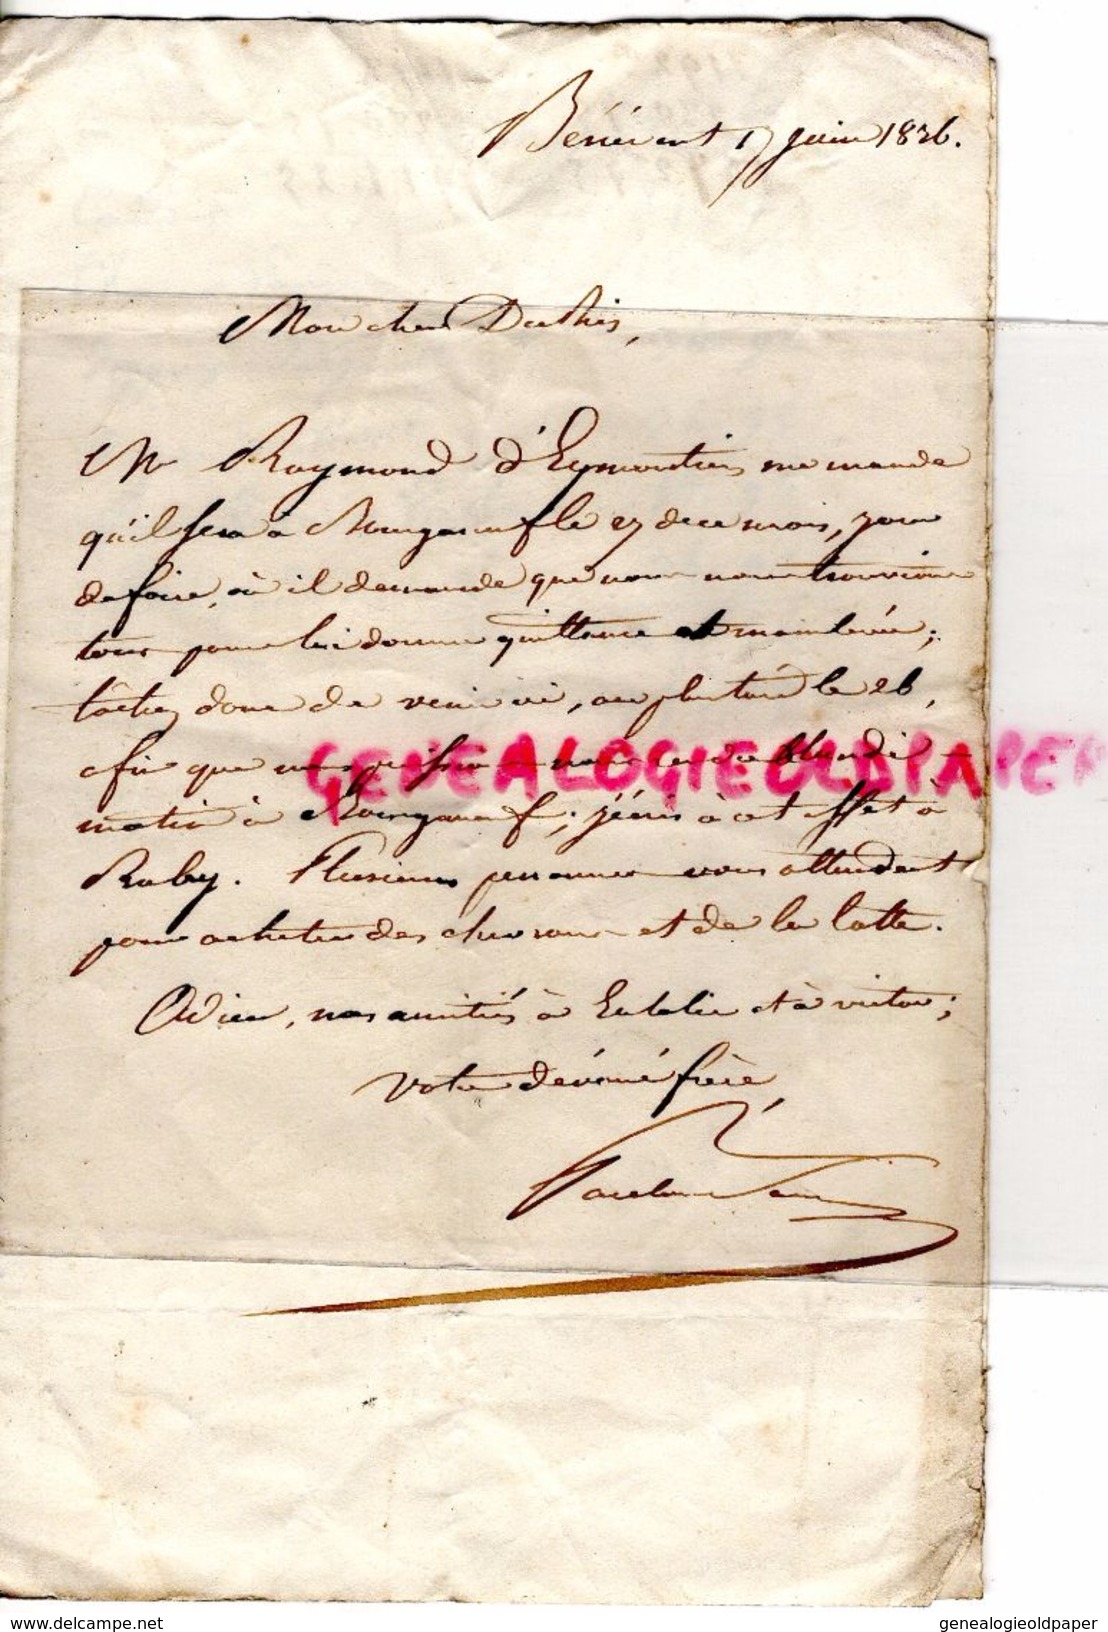 Bénévent 17 juin 1836.
Mon cher Duthéis,
Mr Raymond d'Eymoutiers me mande
qu'il sera à Bourganeuf le 27 de ce mois, jour
de foire, où il demande que nous nous trouvions
tous pour lui donner quittance et mainlevée ;
tâchez donc de venir ici, au plus tard le 26,
afin que nous puissions nous rendre lundi
matin à Bourganeuf ; j'écris à cet effet à
Ruby. Plusieurs personnes vous attendent
pour acheter des chevrons et de la latte.
Adieu, nos amitiés à Eulalie et à victor ;
votre dévoué frère,
GENEALOGIEOLDPAPER
www.delcampe.net
genealogieoldpaper